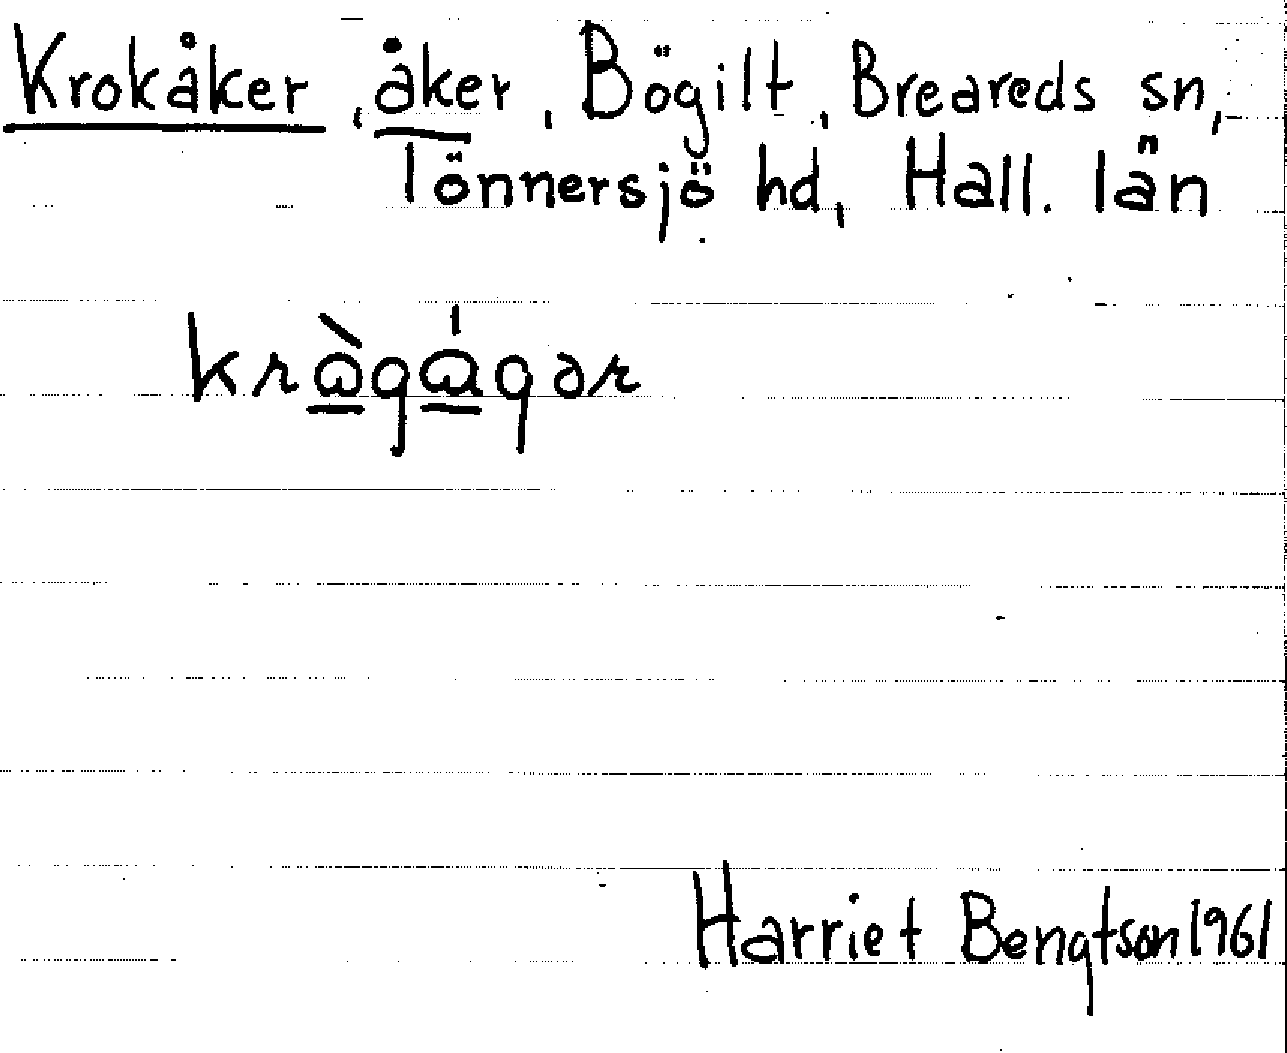 Krokåker, åker, Bögilt, Breareds sn,
Tönnersjö hd, Hall. län
krὼ̲gώ̲gər
Harriet Bengtson 1961